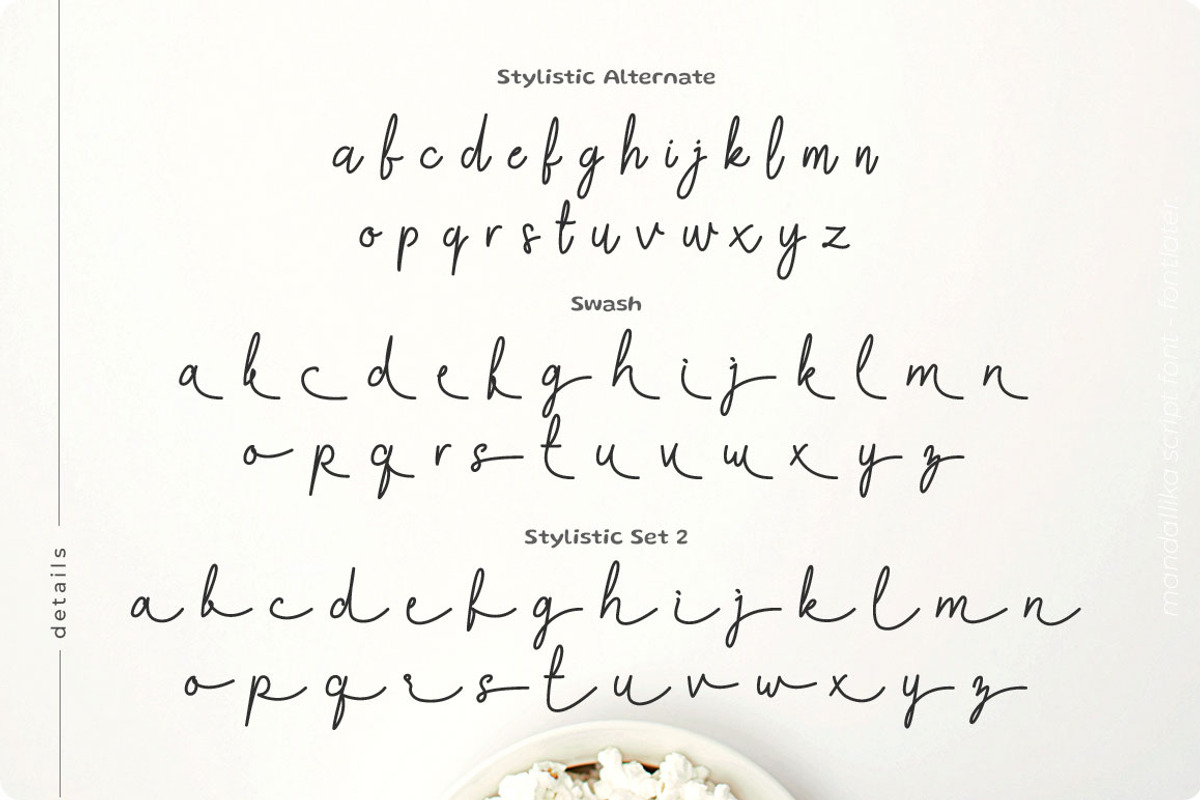 Stylistic Alternate
a b c d e f g h i j k l m n
o p q r s t u v w x y z
Swash
a b c d e f g h i j k l m n
o p q r s t u v w x y z
Stylistic Set 2
a b c d e f g h i j k l m n
o p q r s t u v w x y z
details
mandallika script font - fontkater